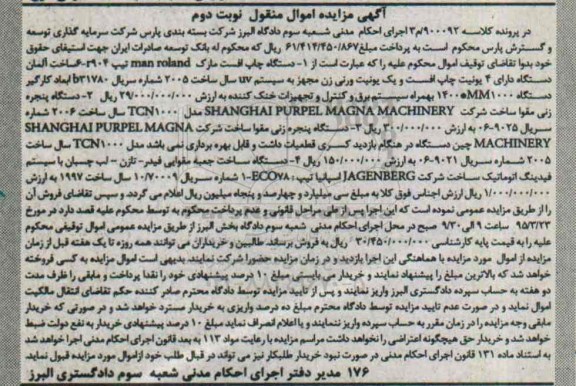 آگهی مزایده اموال منقول نوبت دوم
در پرونده کلاسه ۹۰۰۰۹۲/م۳ اجرای احکام مدنی شعبه سوم دادگاه البرز شرکت بسته بندی پارس شرکت سرمایه گذاری توسعه
و گسترش پارس محکوم است به پرداخت مبلغ ۶۱/۴۱۴/۴۵۰/۸۶۷ ریال که محکوم له بانک توسعه صادرات ایران جهت استیفای حقوق
خود بدوا تقاضای توقیف اموال محکوم علیه را که عبارت است از ۱- دستگاه چاپ افست مارک man roland تیپ ۲۹۰۴-۶ساخت آلمان
دستگاه دارای ۴ یونیت چاپ افست و یک یونیت ورنی زن مجهز به سیستم uv سال ساخت ۲۰۰۵ شماره سریال b۲۱۷۸۰ ابعاد کارگیر
دستگاه ۱۰۰۰*۱۴۰۰MM بهمراه سیستم برق و کنترل و تجهیزات خنک کننده به ارزش ۲۹/۰۰۰/۰۰۰/۰۰۰ ریال ۲- دستگاه پنجره
زنی مقوا ساخت شرکت SHANGHAI PURPEL MAGNA MACHINERY مدل TCN۱۰۰۰ سال ساخت ۲۰۰۶ شماره
سریال ۹۰۲۵-۰۶ به ارزش ۳۰۰/۰۰۰/۰۰۰ ریال ۳- دستگاه پنجره زنی مقوا ساخت شرکت SHANGHAI PURPEL MAGNA
MACHINERY چین دستگاه در هنگام بازدید کسری قطعیات داشت و قابل بهره برداری نمی باشد مدل TCN۱۰۰۰ سال ساخت
۲۰۰۵ شماره سریال ۹۰۲۱-۰۶ به ارزش ۱۵۰/۰۰۰/۰۰۰ ریال ۴- دستگاه ساخت جعبه مقوایی فیدر- تازن - لب چسبان با سیستم
فیدینگ اتوماتیک ساخت شرکت JAGENBERG اسپانیا تیپ ECOV۸۰-۱ شماره سریال ۱۰/۷۰۰۰۹ سال ساخت ۱۹۹۷ به ارزش
۱/۰۰۰/۰۰۰/۰۰۰ ریال ارزش اجناس فوق کلا به مبلغ سی میلیارد و چهارصد و پنجاه میلیون ریال اعلام می گردد. و سپس تقاضای فروش آن
را از طریق مزایده عمومی نموده است که این اجرا پس از طی مراحل قانونی و عدم پرداخت محکوم به توسط محکوم علیه قصد دارد در مورخ
۹۵/۳/۲۳ ساعت ۹ الی ۹/۳۰ صبح در محل اجرای احکام مدنی شعبه سوم دادگاه بخش البرز از طریق مزایده عمومی اموال توقیفی محکوم
علیه را به قیمت پایه کارشناسی ۳۰/۴۵۰/۰۰۰/۰۰۰ ریال به فروش برساند. طالبین و خریداران می توانند همه روزه تا یک هفته قبل از زمان
مزایده از اموال مورد مزایده با هماهنگی این اجرا بازدید و در زمان مزایده حضورا شرکت نمایند. بدیهی است اموال مزایده به کسی فروخته
خواهد شد که بالاترین مبلغ را پیشنهاد نمایند و خریدار می بایستی مبلغ ۱۰ درصد پیشنهادی خود را نقدا پرداخت و مابقی را ظرف مدت
دو هفته به حساب سپرده دادگستری البرز واریز نمایند و پس از تایید مزایده توسط دادگاه محترم صادر کننده حکم تقاضای انتقال مالکیت
اموال نماید و در صورت عدم تایید مزایده توسط دادگاه محترم مبلغ ده درصد واریزی به خریدار مسترد خواهد شد و در صورتی که خریدار
مابقی وجه مزایده را در زمان مقرر به حساب سپرده واریز ننمایند و یا اعلام انصراف نماید مبلغ ۱۰ درصد پیشنهادی خریدار به نفع دولت ضبط
خواهد شد و خریدار حق هیچگونه اعتراضی را نخواهد داشت مراسم مزایده با رعایت مواد ۱۱۳ به بعد قانون اجرای احکام مدنی اجرا خواهد شد
به استناد ماده ۱۳۱ قانون اجرای احکام مدنی در صورت نبود خریدار طلبکار نیز می تواند در قبال طلب خود ازاموال مورد مزایده قبول نماید.
۱۷۶ مدیر دفتر اجرای احکام مدنی شعبه سوم دادگستری البرز